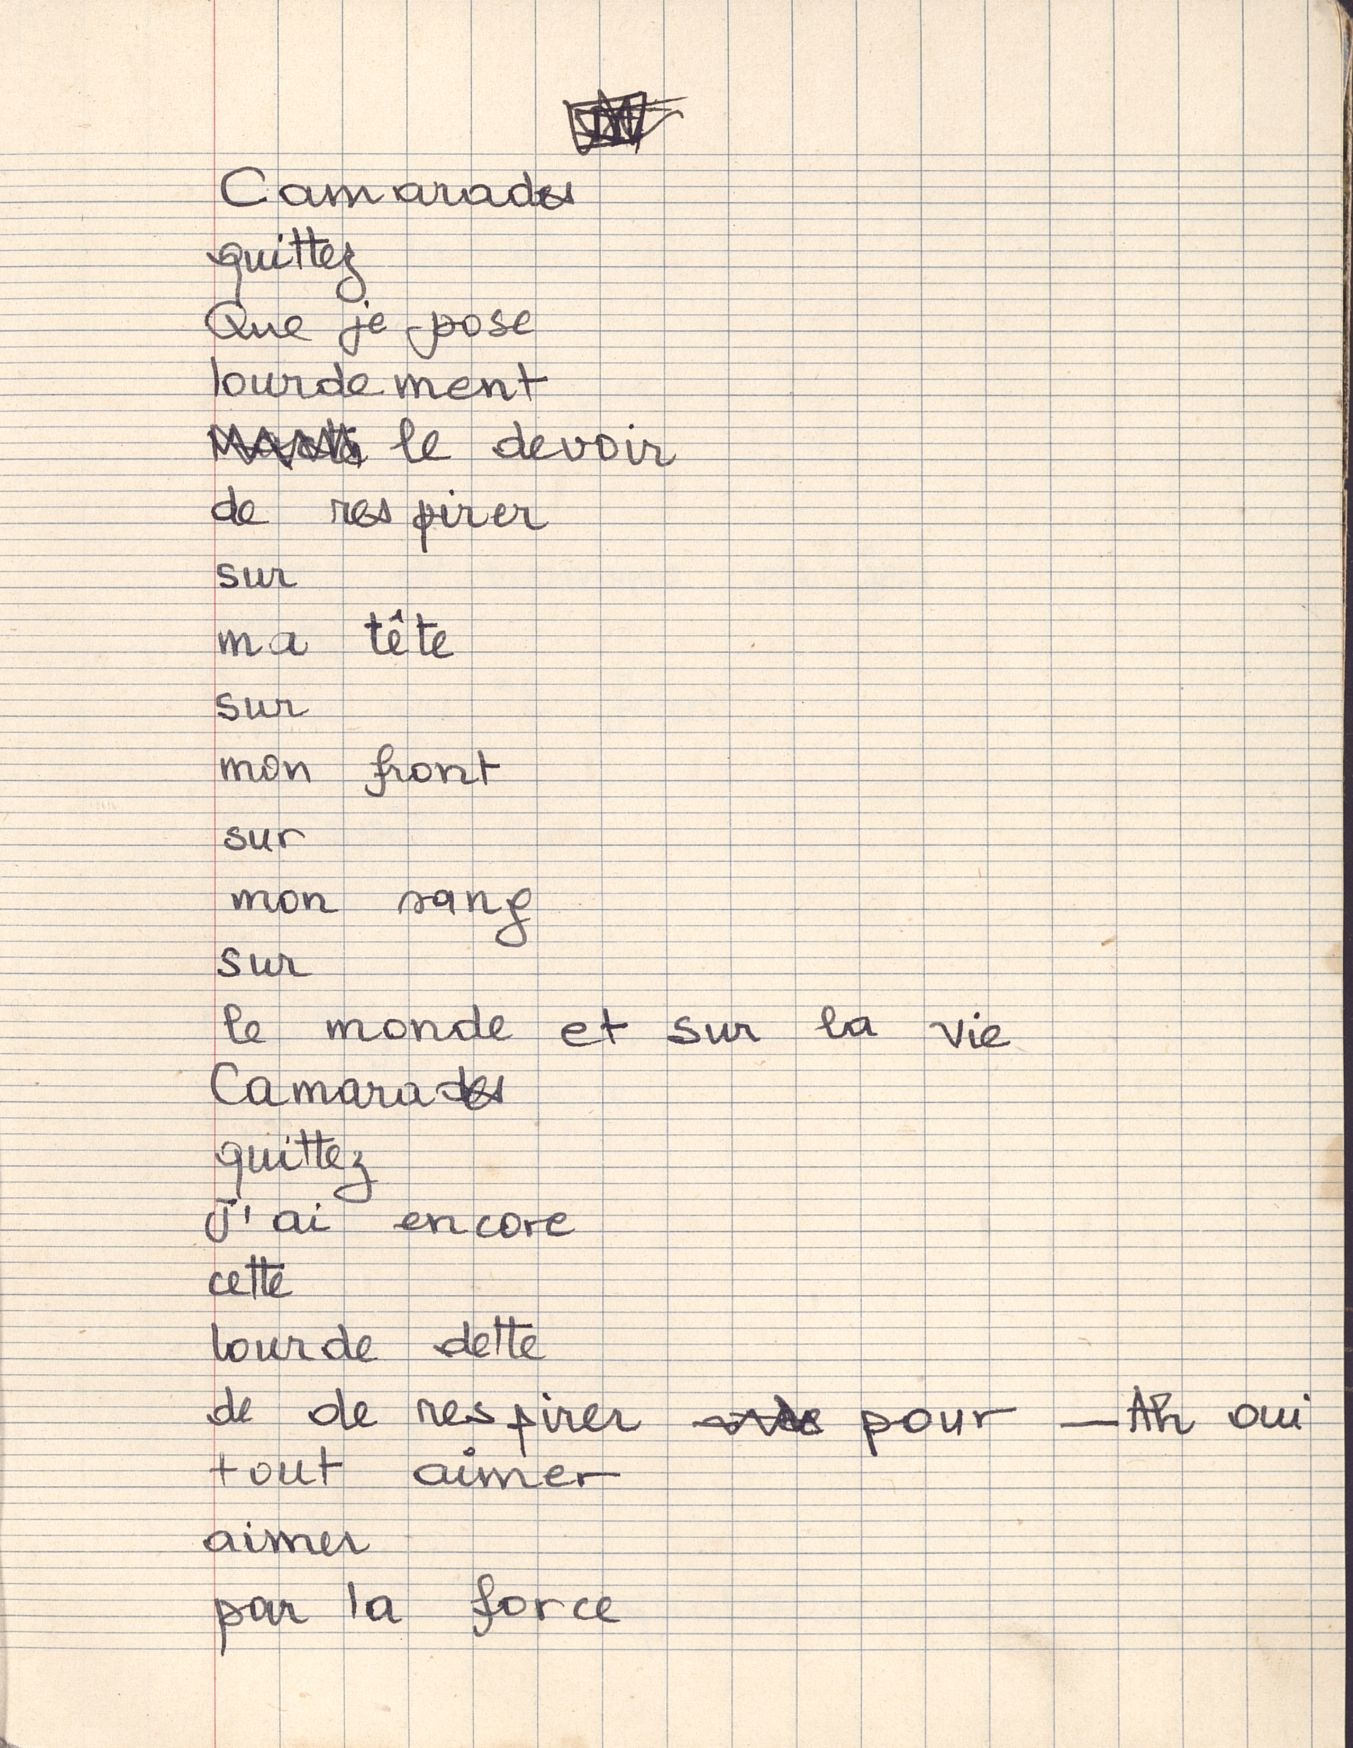 Camarades
quittez
Que je pose
lourdement
le devoir
de respirer
sur
ma tête
sur
mon front
sur
mon sang
sur
le monde et sur la vie
Camarades
quittez
J'ai encore
cette
lourde dette
de de respirer pour — Ah oui
tout aimer
aimer
par la force